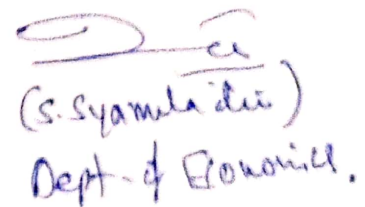 (S. Syamala devi)
Dept. of Economics.